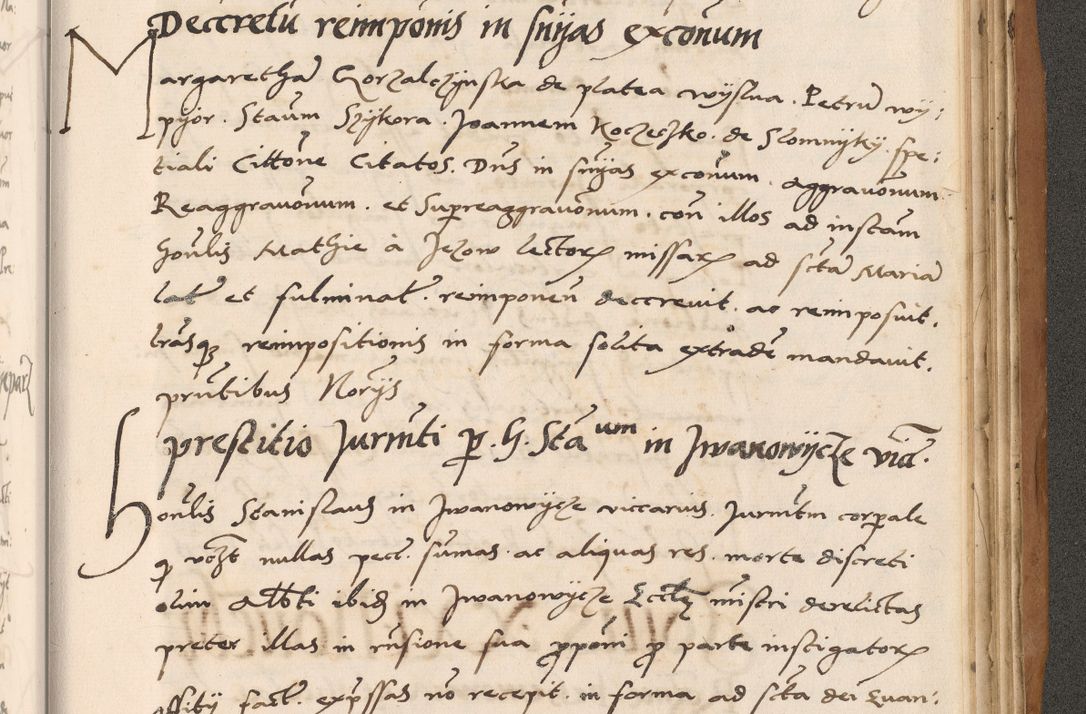 Decretu reimponis in snijas exconum
Margaretha Gorzalczijnska de platea wijslna. Petru wij:
pijor. Staum Szijkora. Joannem Koczeczko. de Slomnijky. spe:
tiali Cittone Citatos. Dns in snijas exconum. aggrauonum
Reaggrauonum. et Supreaggrauonum. con illos ad instam
honlis Mathie à Jezow lector missar ad scta Maria
lat et fulminat. reimponen decreuit. ac reimposuit.
lrasq reimpositionis in forma solita extrade mandauit.
prntibus Norijs
prestitio Jurmti p. H. Staum in Jwanowijcze vica.
Honlis Stanislaus in Jwanowijcze viccarius. Jurmtm corpale
q nullas pect. sumas. ac aliquas res. morte discreti
olim Albti ibid in Jwanowijcze Eccle mistri derelictas
preter illas in rnsione sua pponi p parte instigator
offitij fact. expssas no recepit. in forma ad scta dei Euan: